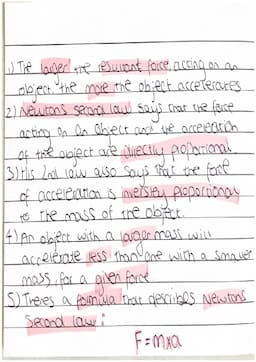 1) The larger the resultant force, acting on an
object, the more the object accelerates
2) Newtons second law says that the force
acting on an object and the acceleration
of the object are directly proportional
3) His 2nd law also says that the force
of acceleration is inversely proportional
to the mass of the object.
4) An object with a larger mass will
accelerate less than one with a smaller
mass, for a given force
5) Theres a formula that describes Newtons
Second law:
F=mxa